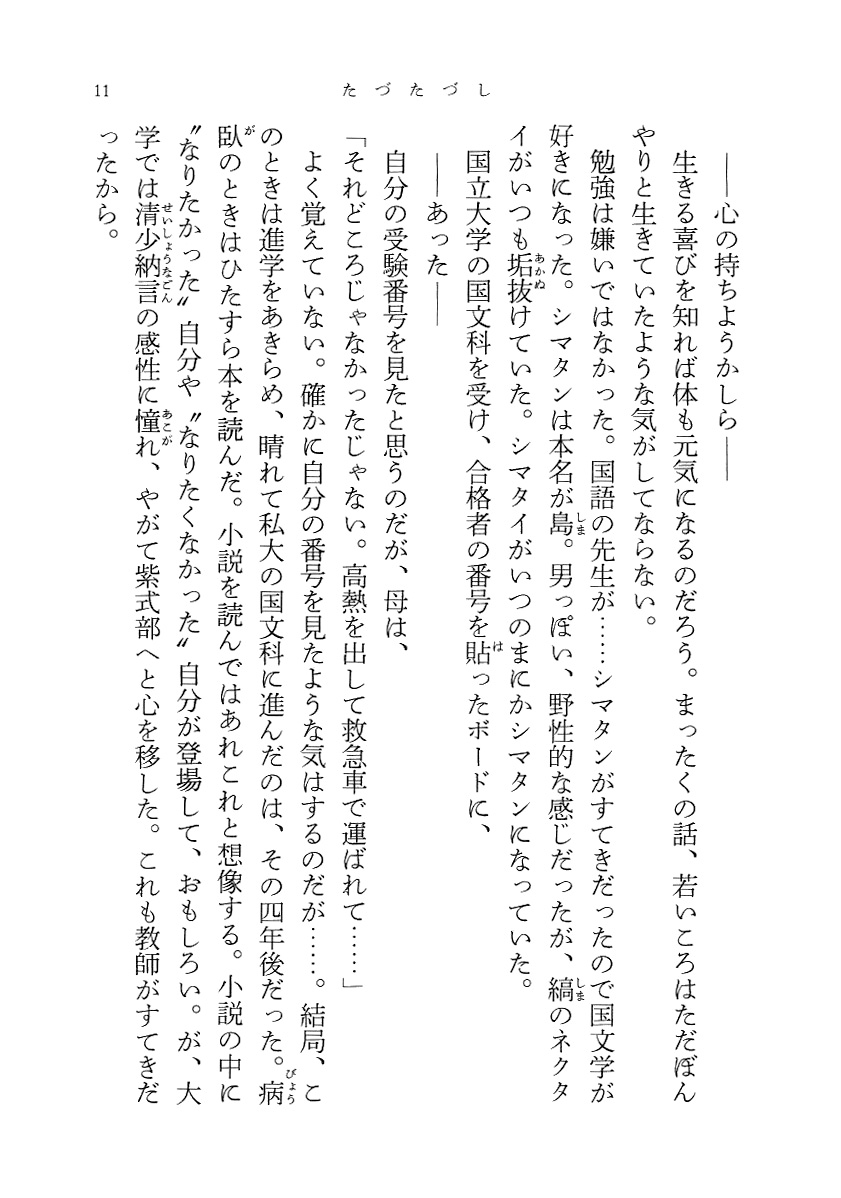 11
たづたづし
――心の持ちようかしら――
生きる喜びを知れば体も元気になるのだろう。まったくの話、若いころはただぼん
やりと生きていたような気がしてならない。
勉強は嫌いではなかった。国語の先生が……シマタンがすてきだったので国文学が
好きになった。シマタンは本名が島。男っぽい、野性的な感じだったが、縞のネクタ
イがいつも垢抜けていた。シマタイがいつのまにかシマタンになっていた。
国立大学の国文科を受け、合格者の番号を貼ったボードに、
――あった――
自分の受験番号を見たと思うのだが、母は、
「それどころじゃなかったじゃない。高熱を出して救急車で運ばれて……」
よく覚えていない。確かに自分の番号を見たような気はするのだが……。結局、こ
のときは進学をあきらめ、晴れて私大の国文科に進んだのは、その四年後だった。病
臥のときはひたすら本を読んだ。小説を読んではあれこれと想像する。小説の中に
〝なりたかった〟自分や〝なりたくなかった〟自分が登場して、おもしろい。が、大
学では清少納言の感性に憧れ、やがて紫式部へと心を移した。これも教師がすてきだ
ったから。